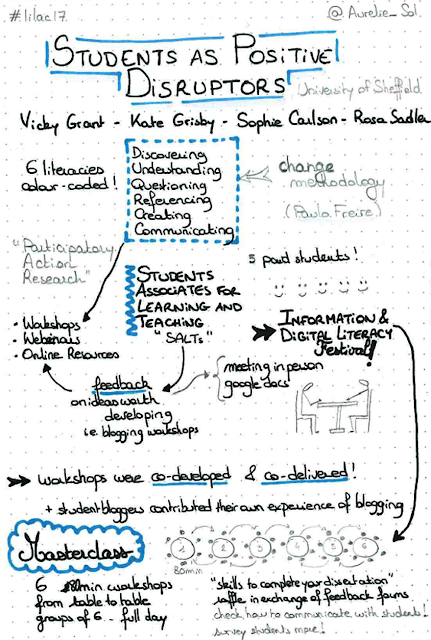 #lilac17
@Aurelie_Sol
STUDENTS AS POSITIVE
DISRUPTORS
University of Sheffield
Vicky Grant - Kate Grigsby - Sophie Coulson - Rosa Sadler
6 literacies
colour-coded!
Discovering
Understanding
Questioning
Referencing
Creating
Communicating
change
methodology
(Paulo Freire)
"Participatory
Action
Research"
5 paid students!
STUDENTS
ASSOCIATES FOR
LEARNING AND
TEACHING
"SALTs"
• Workshops
• Webinars
• Online Resources
INFORMATION &
DIGITAL LITERACY
Festival!
feedback
on ideas worth
developing
i.e. blogging workshops
meeting in person
google docs
workshops were co-developed & co-delivered!
+ student bloggers contributed their own experience of blogging
Masterclass
1 2 3 4 5 6
80min
6 80min workshops
from table to table
groups of 6... full day
"skills to complete your dissertation"
raffle in exchange of feedback forms
check how to communicate with students!
survey students more!